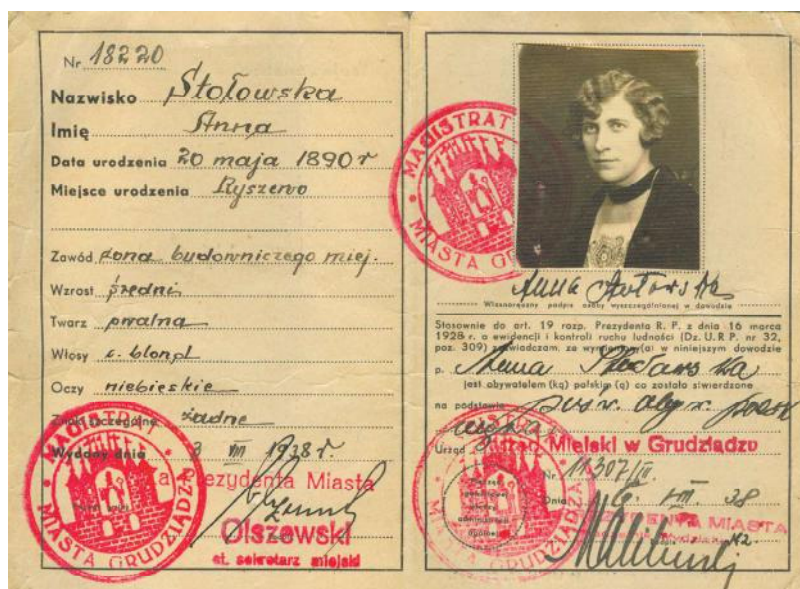 Nr 18220
Nazwisko Stołowska
Imię Anna
Data urodzenia 20 maja 1890 r
Miejsce urodzenia Ryszewo
Zawód żona budowniczego miej.
Wzrost średni
Twarz owalna
Włosy c. blond
Oczy niebieskie
Znaki szczególne żadne
Wydany dnia 3 VIII 1938 r.
Prezydenta Miasta
Olszewski
st. sekretarz miejski
MAGISTRAT
MIASTA GRUDZIĄDZA
MAGISTRAT
MIASTA GR
Anna Stołowska
Własnoręczny podpis osoby wyszczególnionej w dowodzie
Stosownie do art. 19 rozp. Prezydenta R. P. z dnia 16 marca
1928 r. o ewidencji i kontroli ruchu ludności (Dz. U. R. P. nr 32,
poz. 309) zaświadczam, że wymieniony(a) w niniejszym dowodzie
p. Anna Stołowska
jest obywatelem (ką) polskim (ą) co zostało stwierdzone
na podstawie pośw. obyw. polsk
Urząd Urząd Miejski w Grudziądzu
Nr. 11307/II.
Dnia VIII. 38
MIASTA
MIASTA GRUDZIĄDZA